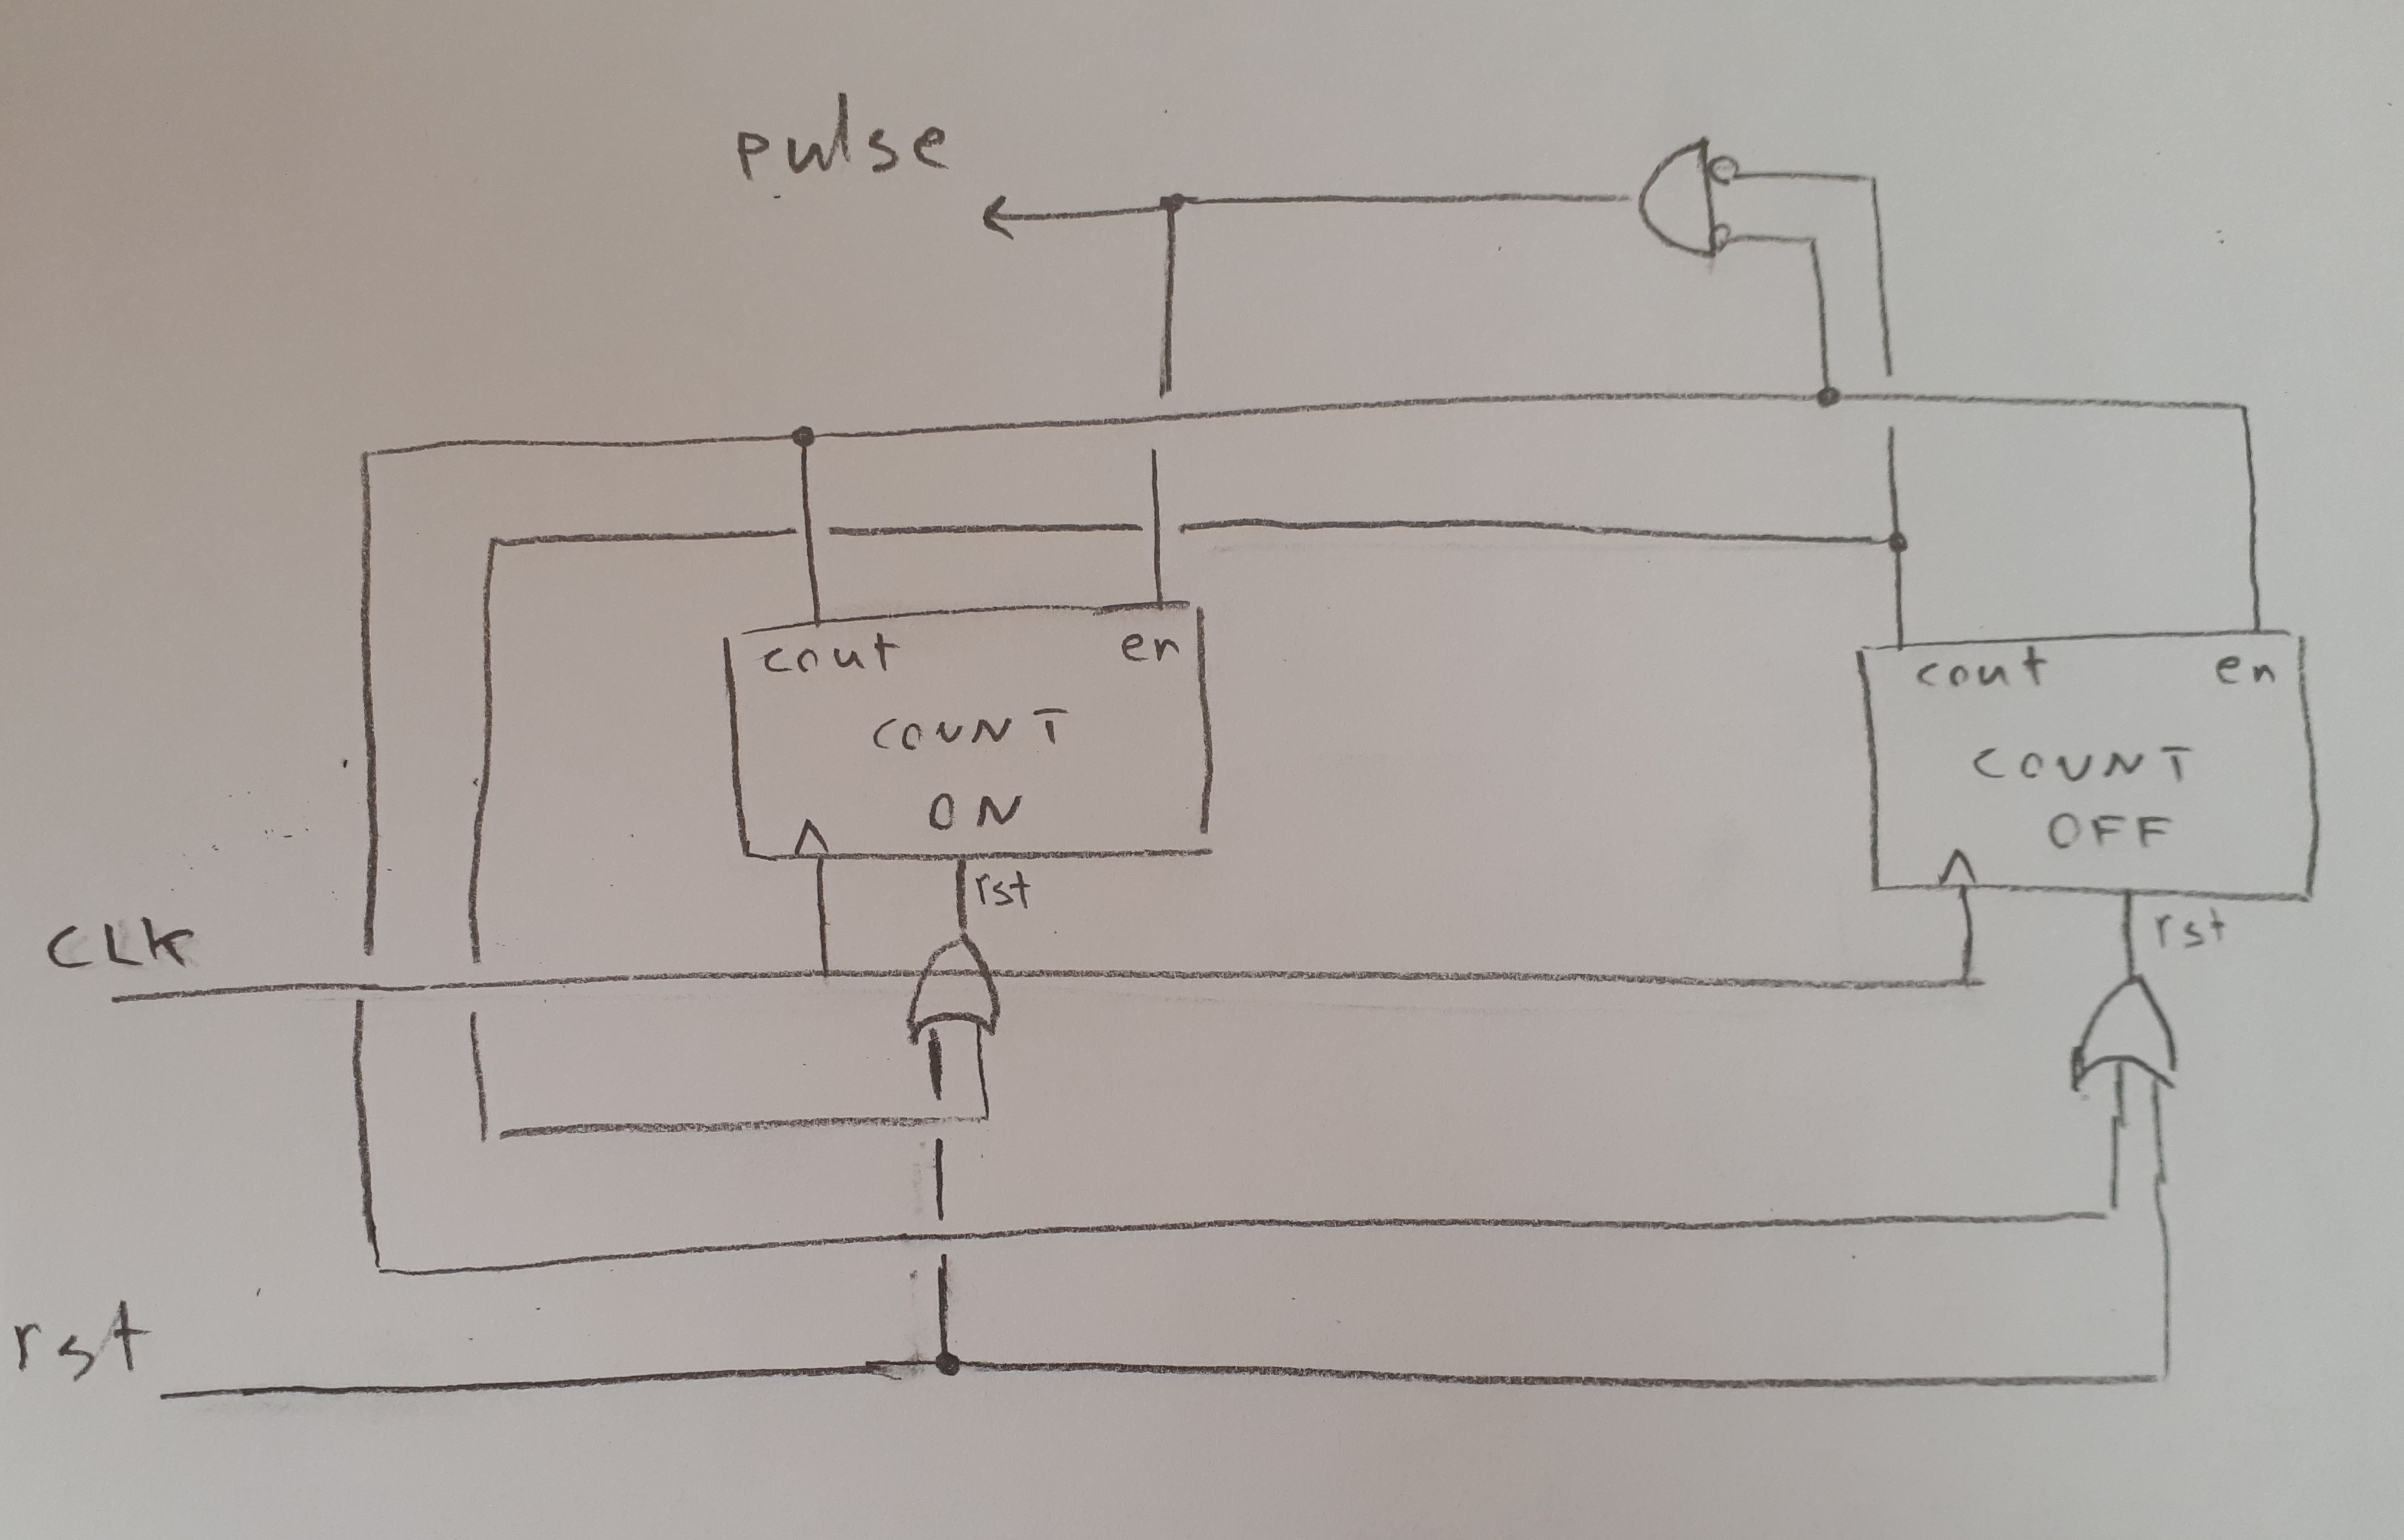 pulse
cout en
COUNT
ON
rst
cout en
COUNT
OFF
rst
CLK
rst